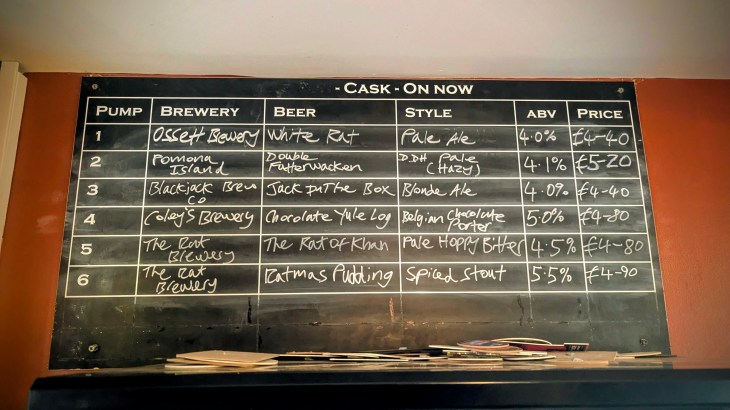 - CASK - ON NOW
PUMP BREWERY BEER STYLE ABV PRICE
1 Ossett Brewery White Rat Pale Ale 4.0% £4-40
2 Pomona Island Double Futterwacken DDH Pale (Hazy) 4.1% £5-20
3 Blackjack Brew Co Jack In The Box Blonde Ale 4.0% £4-40
4 Coley's Brewery Chocolate Yule Log Belgian Chocolate Porter 5.0% £4-80
5 The Rat Brewery The Rat Of Khan Pale Hoppy Bitter 4.5% £4-80
6 The Rat Brewery Ratmas Pudding Spiced Stout 5.5% £4-90